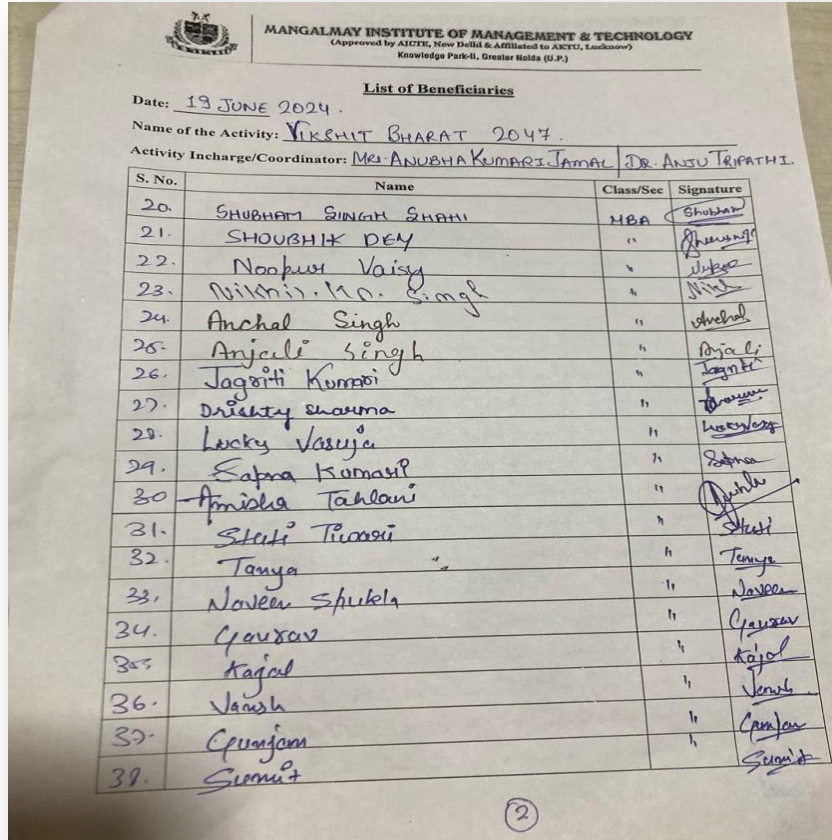 MANGALMAY INSTITUTE OF MANAGEMENT & TECHNOLOGY
(Approved by AICTE, New Delhi & Affiliated to AKTU, Lucknow)
Knowledge Park-II, Greater Noida (U.P.)
List of Beneficiaries
Date: 19 JUNE 2024.
Name of the Activity: VIKSHIT BHARAT 2047.
Activity Incharge/Coordinator: MRS. ANUBHA KUMARI JAMAL | DR. ANJU TRIPATHI.
S. No. Name Class/Sec Signature
20. SHUBHAM SINGH SHAHI MBA Shubham
21. SHOUBHIK DEY "
22. Noopur Vaisy "
23. Nikhil. Kr. Singh " Nikh
24. Anchal Singh " Anchal
25. Anjali Singh " Anjali
26. Jagriti Kumari " Jagriti
27. Drishty sharma "
28. Lucky Vasuja "
29. Sapna Kumari " Sapna
30 Amisha Tahlani "
31. Stuti Tiwari " Stuti
32. Tanya " Tanya
33. Naveen Shukla " Naveen
34. Gaurav " Gaurav
35. Kajal " Kajol
36. Vansh " Vansh
37. Gunjan " Gunjan
38. Sumit " Sumit
2